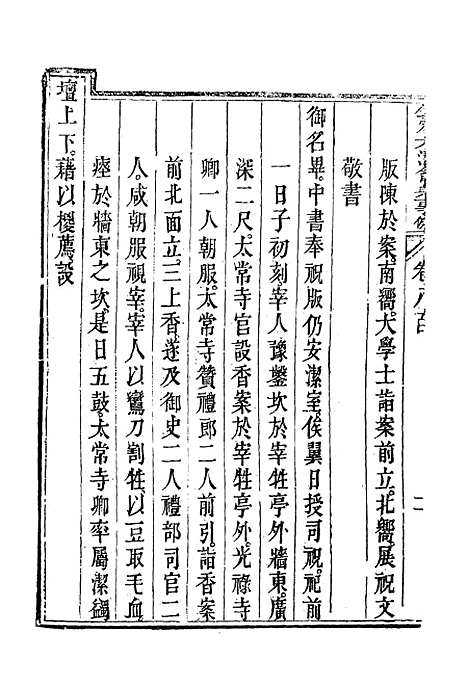 版陳於案。南嚮。大學士詣案前立。北嚮。展祝文
敬書
御名畢。中書奉祝版仍安潔室。俟翼日授司祝。祀前
一日子初刻。宰人豫鑿坎於宰牲亭外牆東。廣
深二尺。太常寺官設香案於宰牲亭外。光祿寺
卿一人朝服。太常寺贊禮郎二人前引。詣香案
前北面立。三上香。遂及御史二人禮部司官二
人。咸朝服視宰。宰人以鸞刀割牲。以豆取毛血。
瘞於牆東之坎。是日五鼓。太常寺卿率屬潔蠲
壇上下。藉以椶薦。設